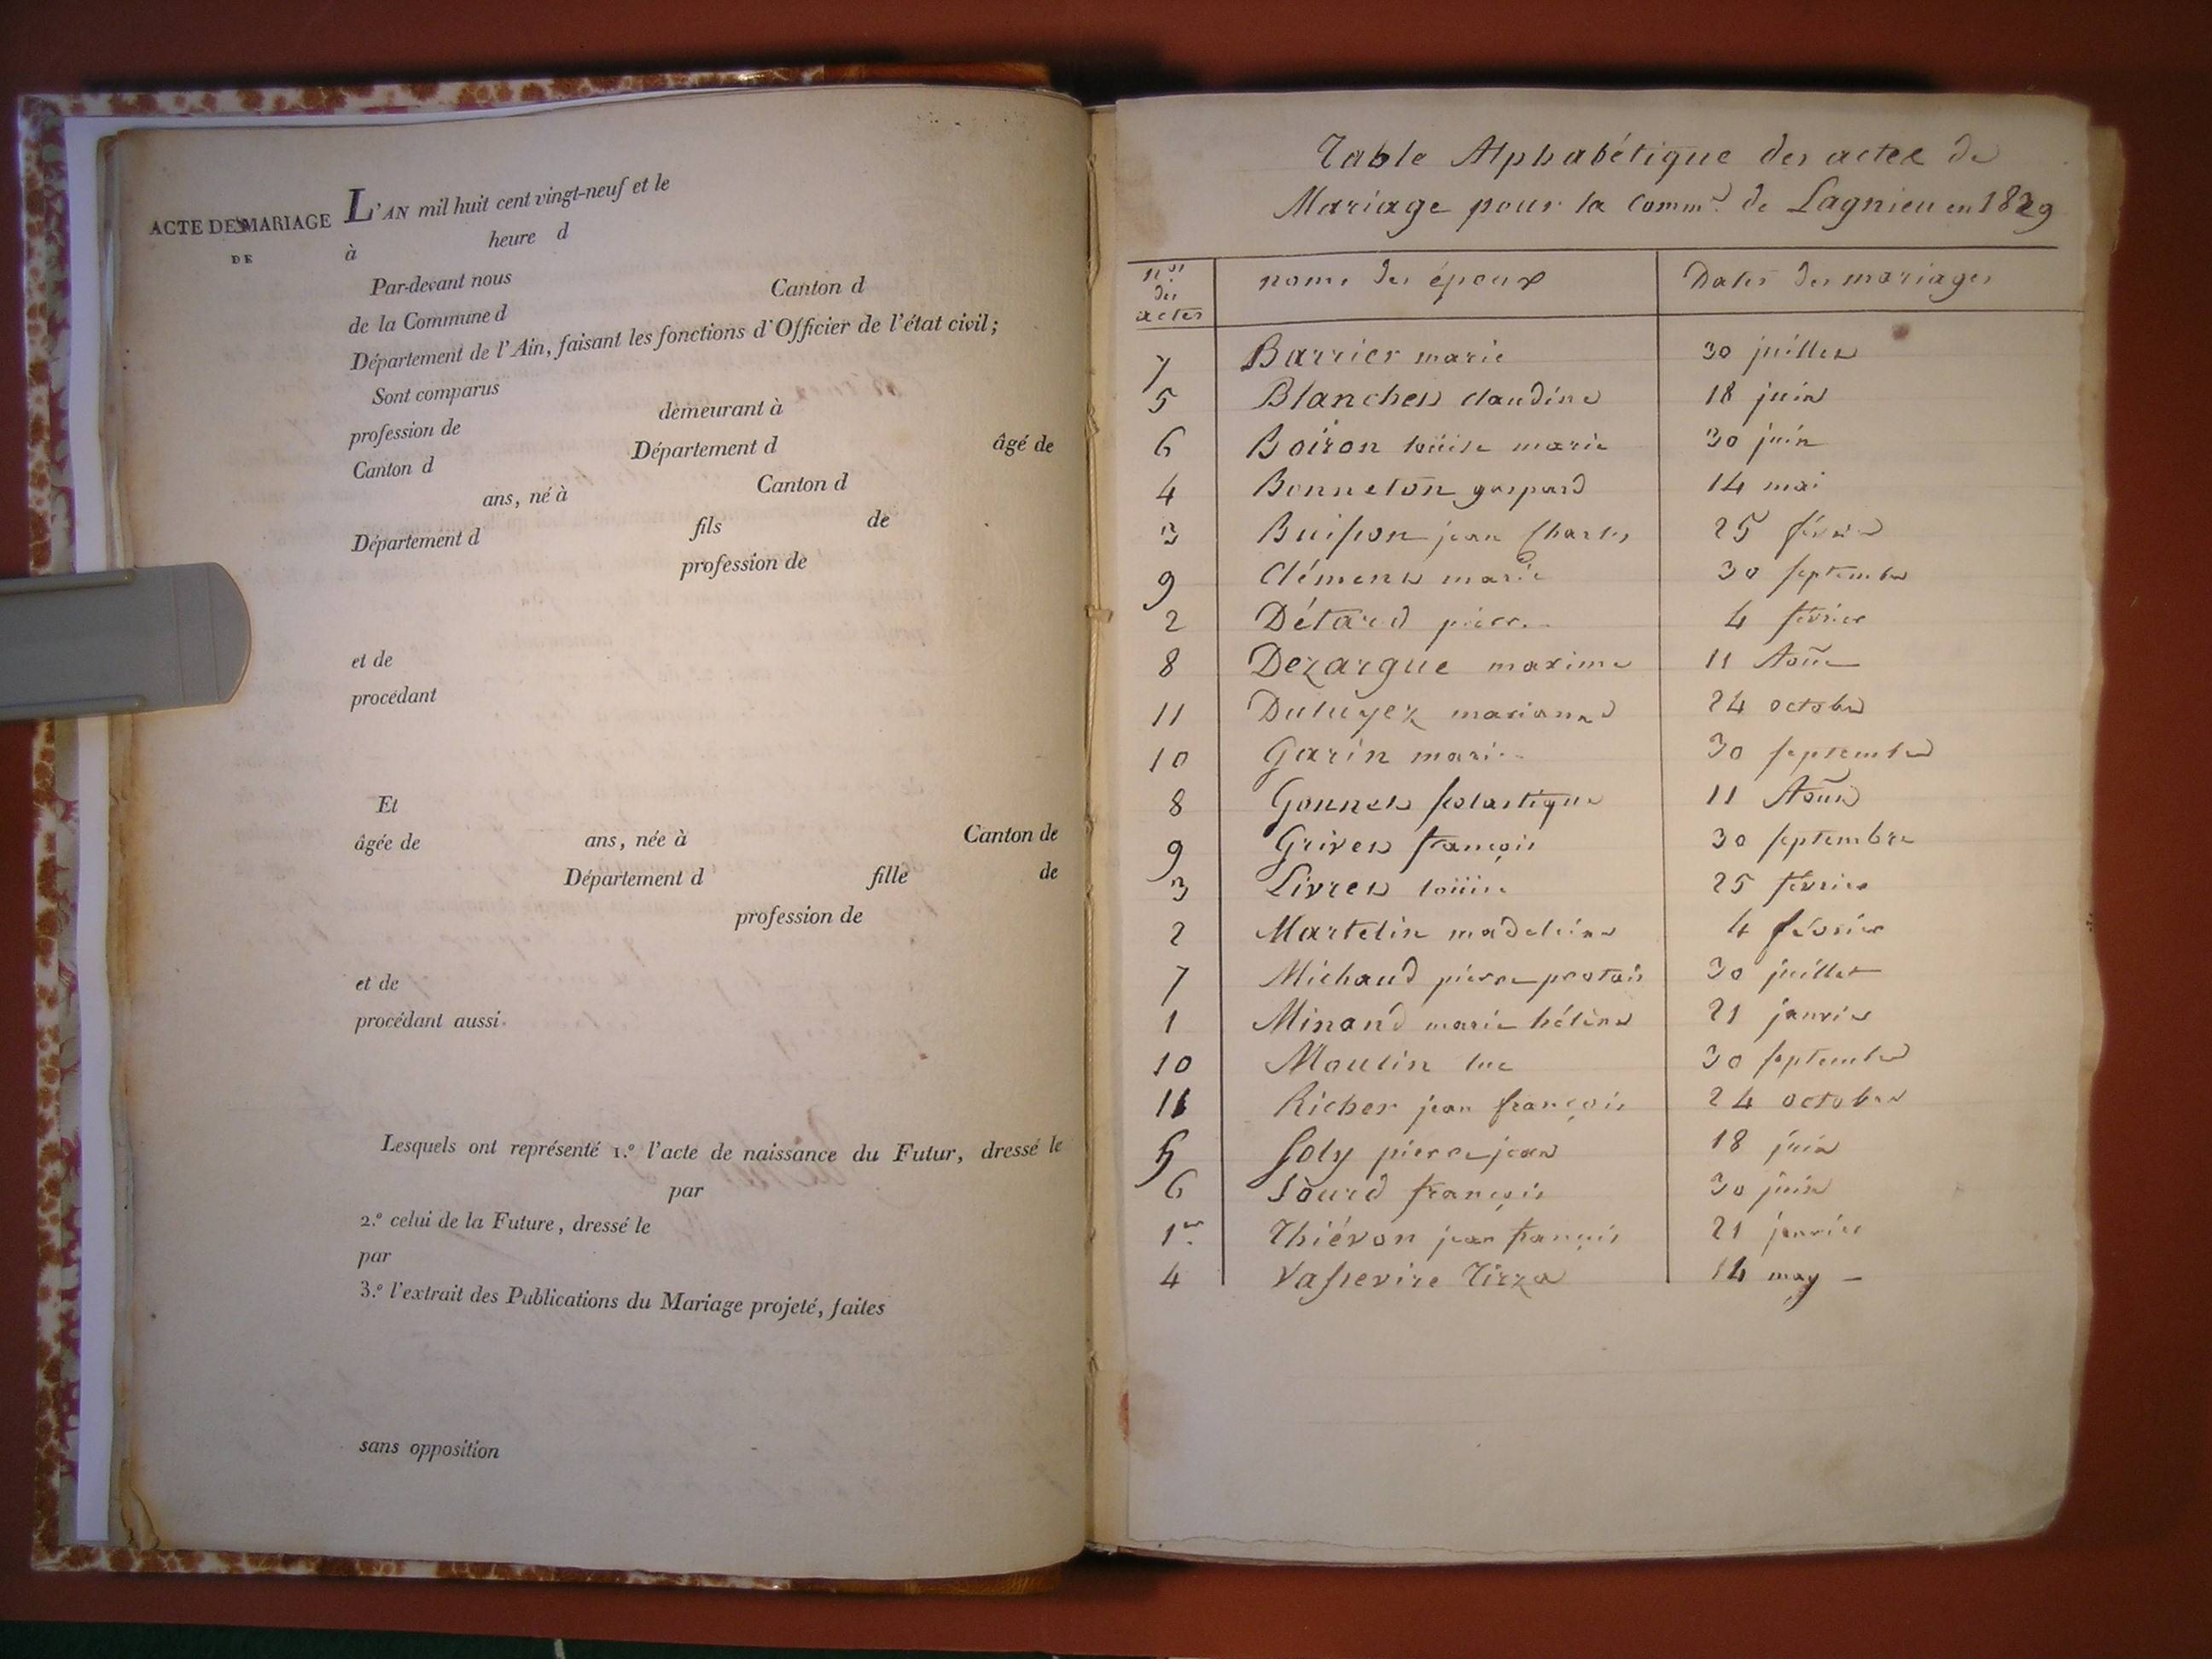 ACTE DE MARIAGE
DE
L'AN mil huit cent vingt-neuf et le
à heure d
Par-devant nous
de la Commune d Canton d
Département de l'Ain, faisant les fonctions d'Officier de l'état civil;
Sont comparus
profession de demeurant à
Canton d Département d âgé de
ans, né à Canton d
Département d fils de
profession de
et de
procédant
Et
âgée de ans, née à Canton de
Département d fille de
profession de
et de
procédant aussi
Lesquels ont représenté 1.º l'acte de naissance du Futur, dressé le
par
2.º celui de la Future, dressé le
par
3.º l'extrait des Publications du Mariage projeté, faites
sans opposition
Table Alphabétique des actes de
Mariage pour la Comm.e de Lagnieu en 1829
n.os des actes noms des époux Dates des mariages
7 Barrier marie 30 juillet
5 Blanchet claudine 18 juin
6 Boiron loüise marie 30 juin
4 Bonneton gaspard 14 mai
3 Buisson jean Charles 25 février
9 Clément marie 30 septembre
2 Détard pierre 4 février
8 Dezargue maxime 11 Août
11 marianne 24 octobre
10 Garin marie 30 septembre
8 Gonnet scolastique 11 Août
9 Grivet françois 30 septembre
3 Livret loüise 25 février
2 Martelin madeleine 4 février
7 Michaud pierre protais 30 juillet
1 Minand marie hélène 21 janvier
10 Moulin luc 30 septembre
11 Richer jean françois 24 octobre
5 Soly pierre jean 18 juin
6 Sourd françois 30 juin
1er Thiévon jean françois 21 janvier
4 Vassevire Tirza 14 may